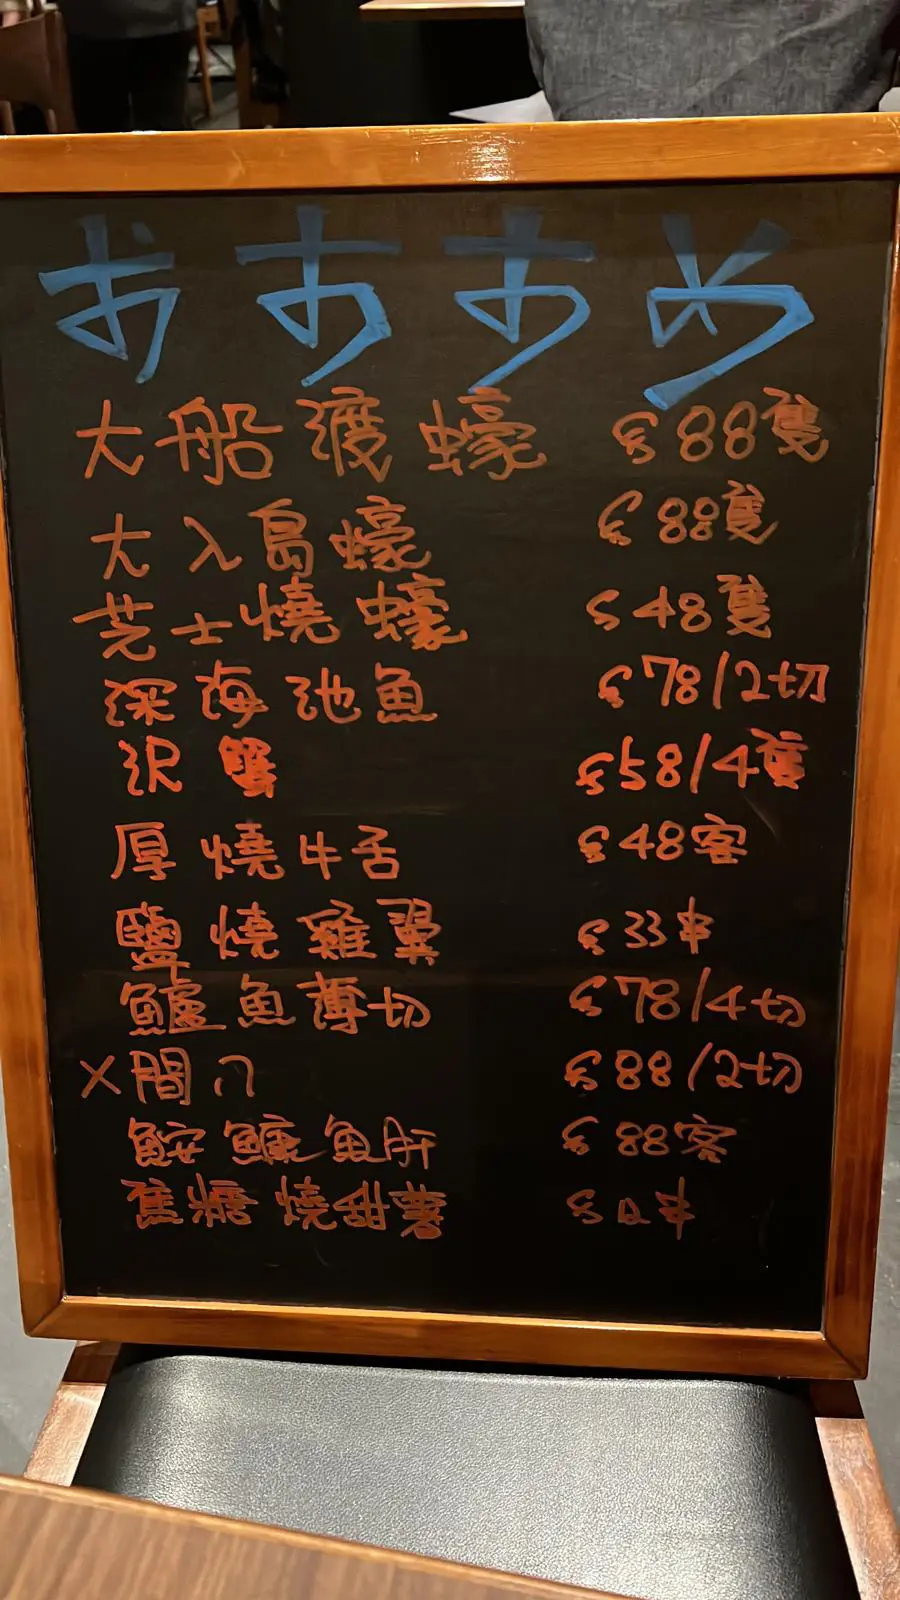 おすすめ
大船渡蠔 $88隻
大入島蠔 $88隻
芝士燒蠔 $48隻
深海池魚 $78/2切
沢蟹 $58/4隻
厚燒牛舌 $48客
鹽燒雞翼 $33串
鱸魚薄切 $78/4切
×間八 $88/2切
鮟鱇魚肝 $88客
蕉糖燒甜薯 $ 串